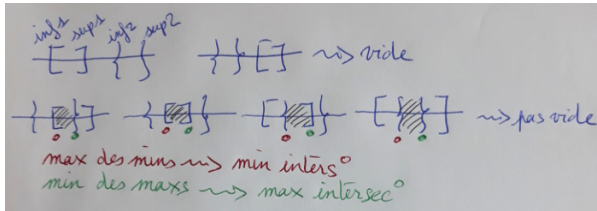 inf1 sup1 inf2 sup2
[ ] { } { } [ ] ~> vide
{ [ } ] { [ ] } [ { ] } [ { } ] ~> pas vide
max des mins ~> min inters°
min des maxs ~> max intersec°